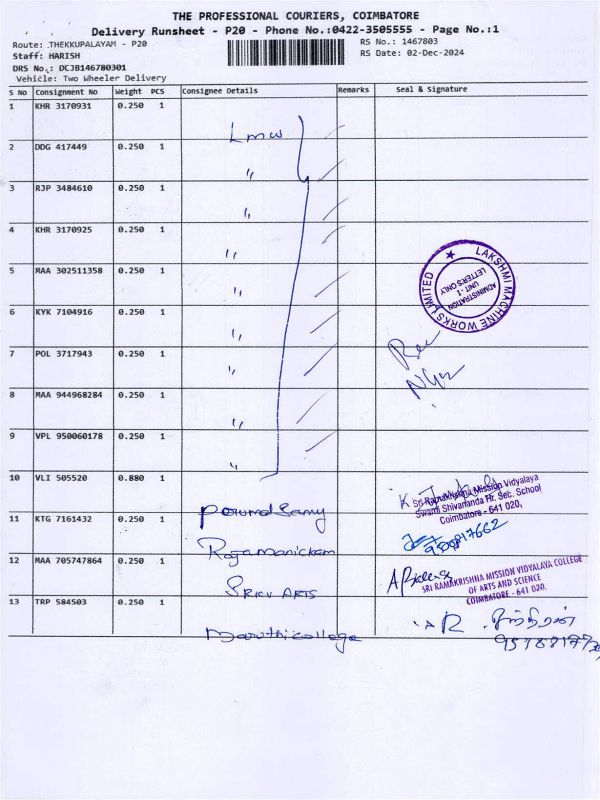 THE PROFESSIONAL COURIERS, COIMBATORE
Delivery Runsheet - P20 - Phone No.:0422-3505555 - Page No.:1
Route: THEKKUPALAYAM - P20 RS No.: 1467803
Staff: HARISH RS Date: 02-Dec-2024
DRS No.: DCJB146780301
Vehicle: Two Wheeler Delivery
S No Consignment No Weight PCS Consignee Details Remarks Seal & Signature
1 KHR 3170931 0.250 1
Lmw
2 DDG 417449 0.250 1
"
3 RJP 3484610 0.250 1
"
4 KHR 3170925 0.250 1
"
5 MAA 302511358 0.250 1
"
LAKSHMI MACHINE WORKS LIMITED
ADMINISTRATION
UNIT -1
LETTERS ONLY
6 KYK 7104916 0.250 1
"
7 POL 3717943 0.250 1
"
8 MAA 944968284 0.250 1
"
9 VPL 950060178 0.250 1
"
10 VLI 505520 0.880 1
Sri Ramakrishna Mission Vidyalaya
Swami Shivananda Hr. Sec. School
Coimbatore - 641 020,
11 KTG 7161432 0.250 1
Rajamanickam
9500817662
12 MAA 705747864 0.250 1
SRKV ARTS
SRI RAMAKRISHNA MISSION VIDYALAYA COLLEGE
OF ARTS AND SCIENCE
COIMBATORE - 641 020.
13 TRP 584503 0.250 1
Maruthi college